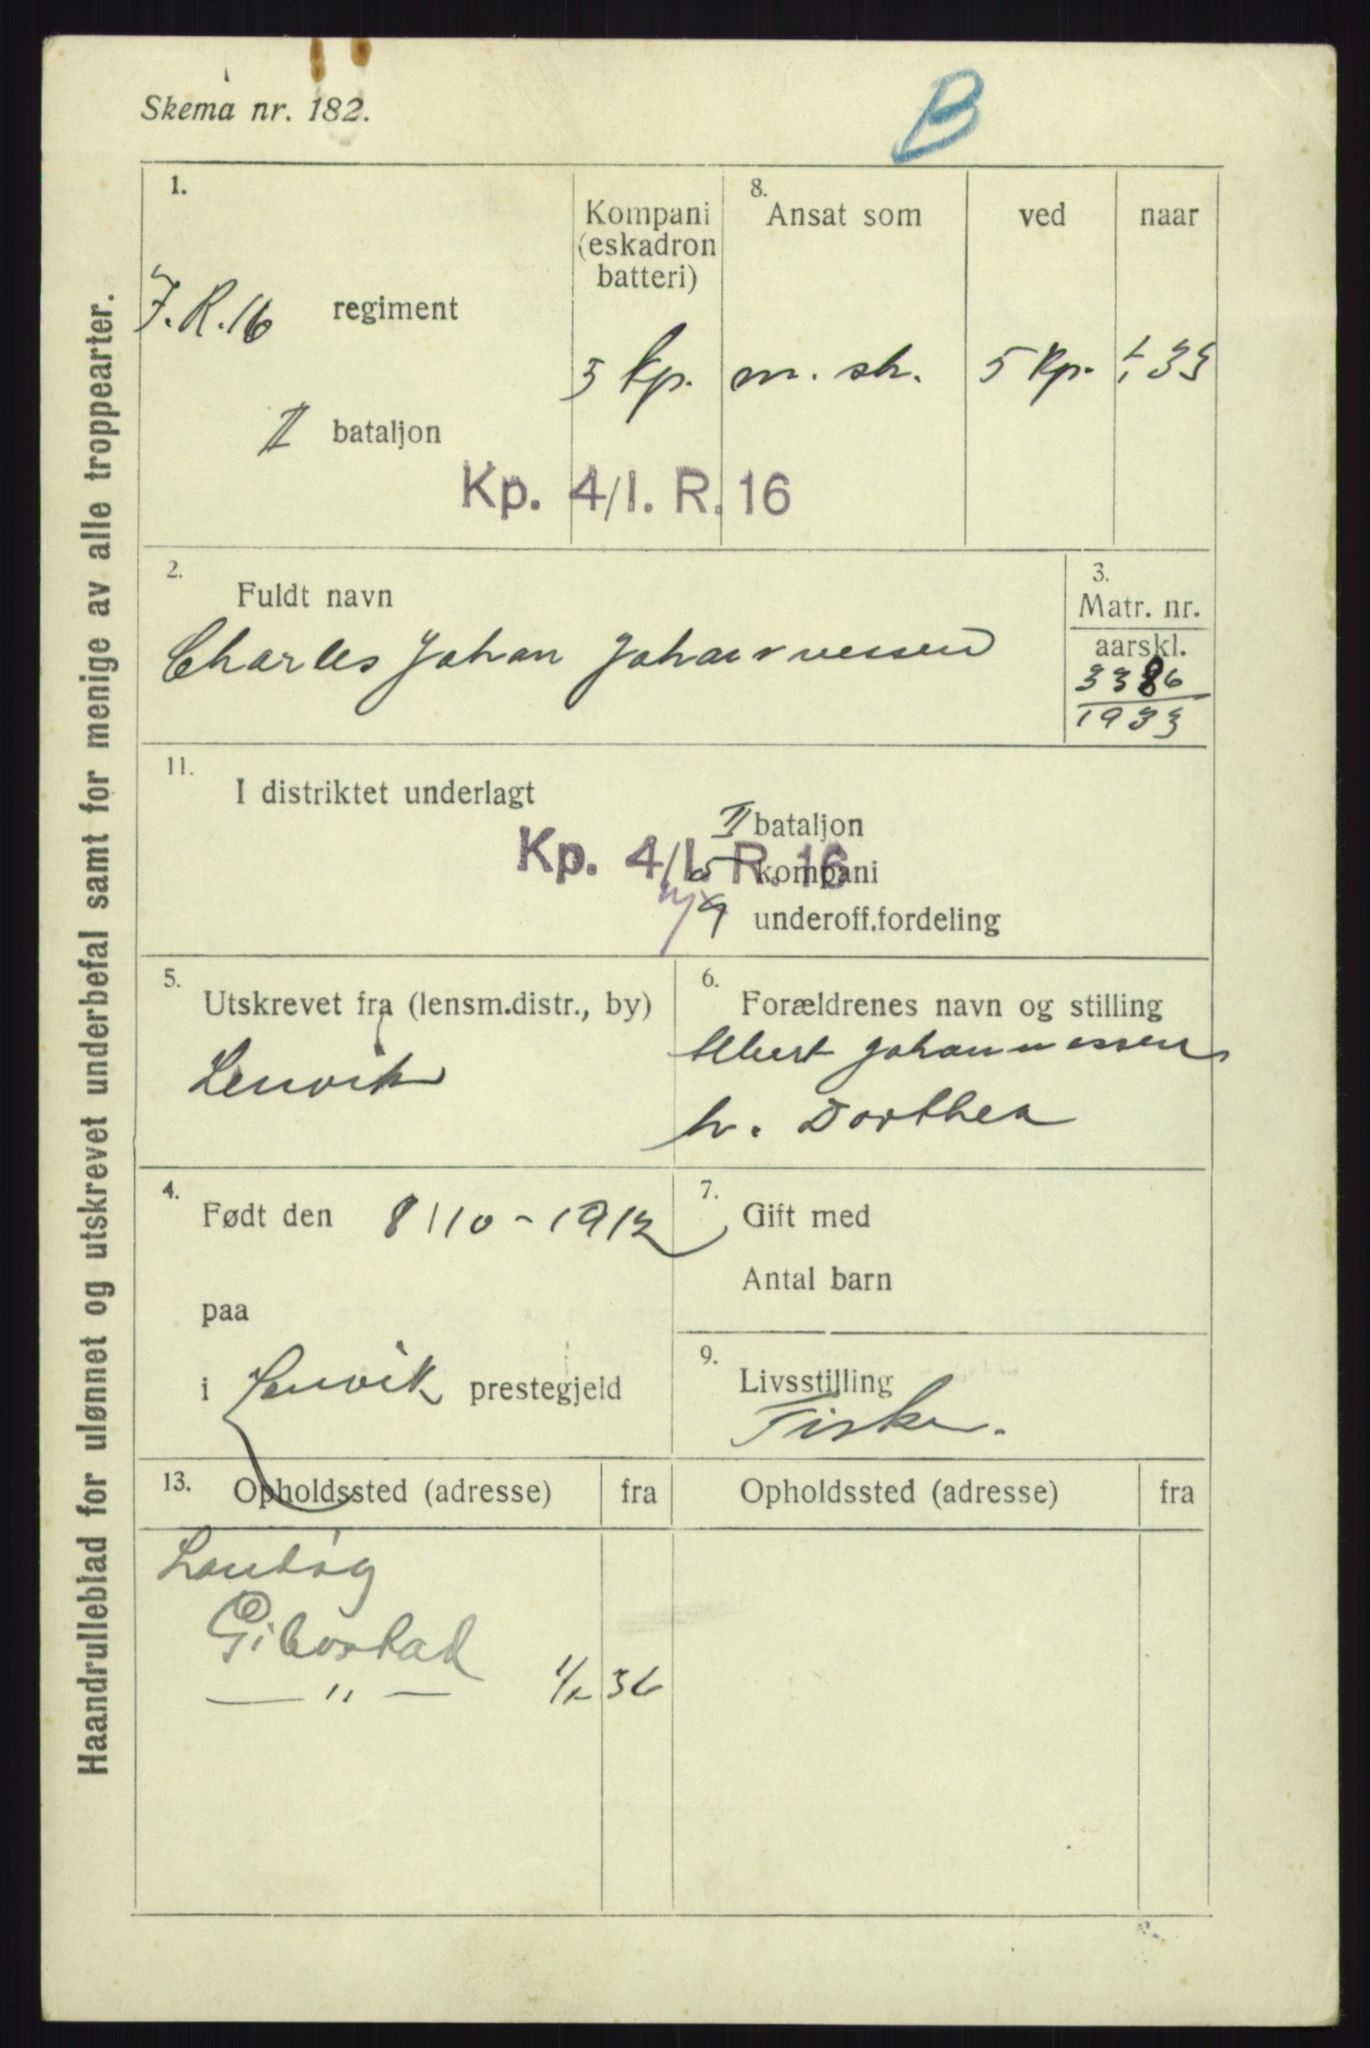 Skema nr. 182.
B
Haandrulleblad for ulønnet og utskrevet underbefal samt for menige av alle troppearter.
1.
I.R.16 regiment
II bataljon
Kompani
(eskadron
batteri)
5 Kp.
8.
Ansat som
m. sk.
ved
5 Kp.
naar
33
Kp. 4/I. R. 16
2.
Fuldt navn
Charles Johan Johannessen
3.
Matr. nr.
aarskl.
3386
1933
11.
I distriktet underlagt
II bataljon
Kp. 4/I. R. 16
5 kompani
9 underoff.fordeling
5.
Utskrevet fra (lensm.distr., by)
Lenvik
6.
Forældrenes navn og stilling
Albert Johannessen
h. Dorthea
4.
Født den 8/10-1912
paa
i Lenvik prestegjeld
7.
Gift med
Antal barn
9.
Livsstilling
Fisker.
13.
Opholdssted (adresse) fra
Opholdssted (adresse) fra
Gibostad
— " — 36